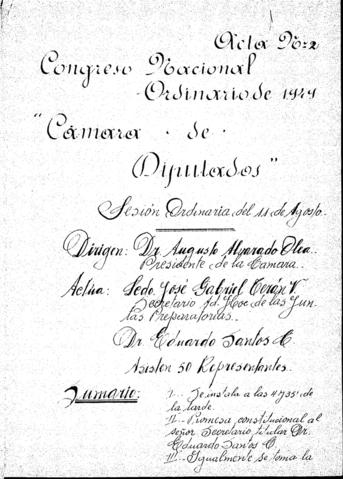 Acta N=2
Congreso Nacional
Ordinario de 1949
"Cámara de
Diputados"
Sesión Ordinaria del 11 de Agosto.
Dirigen: Dr. Augusto Alvarado Olea.
Presidente de la Camara.
Actúa: Lcdo José Gabriel Terán V
Secretario Ad. Hoc de las Jun-
tas Preparatorias.
Dr. Eduardo Santos C.
Asisten 50 Representantes.
Sumario: I.- Se instala a las 4 y 35' de
la tarde.
II- Promesa constitucional al
señor Secretario titular Dr.
Eduardo Santos C.
III- Igualmente se toma la